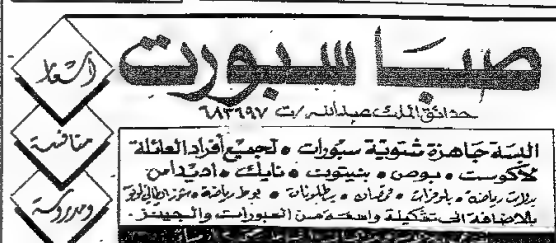 صبا سبورت
حدائق الملك عبدالله / ت ٦٨٣٦٩٧
اسعار
منافسة
ومدروسة
البسة جاهزة شتوية سبورات • لجميع أفراد العائلة
لاكوست • بوص • بنيتون • نايك • اديداس
بدلات رياضة • بلوفرات • قمصان • بنطلونات • بوط رياضة •
بالاضافة الى تشكيلة واسعة من السبورات والجينز